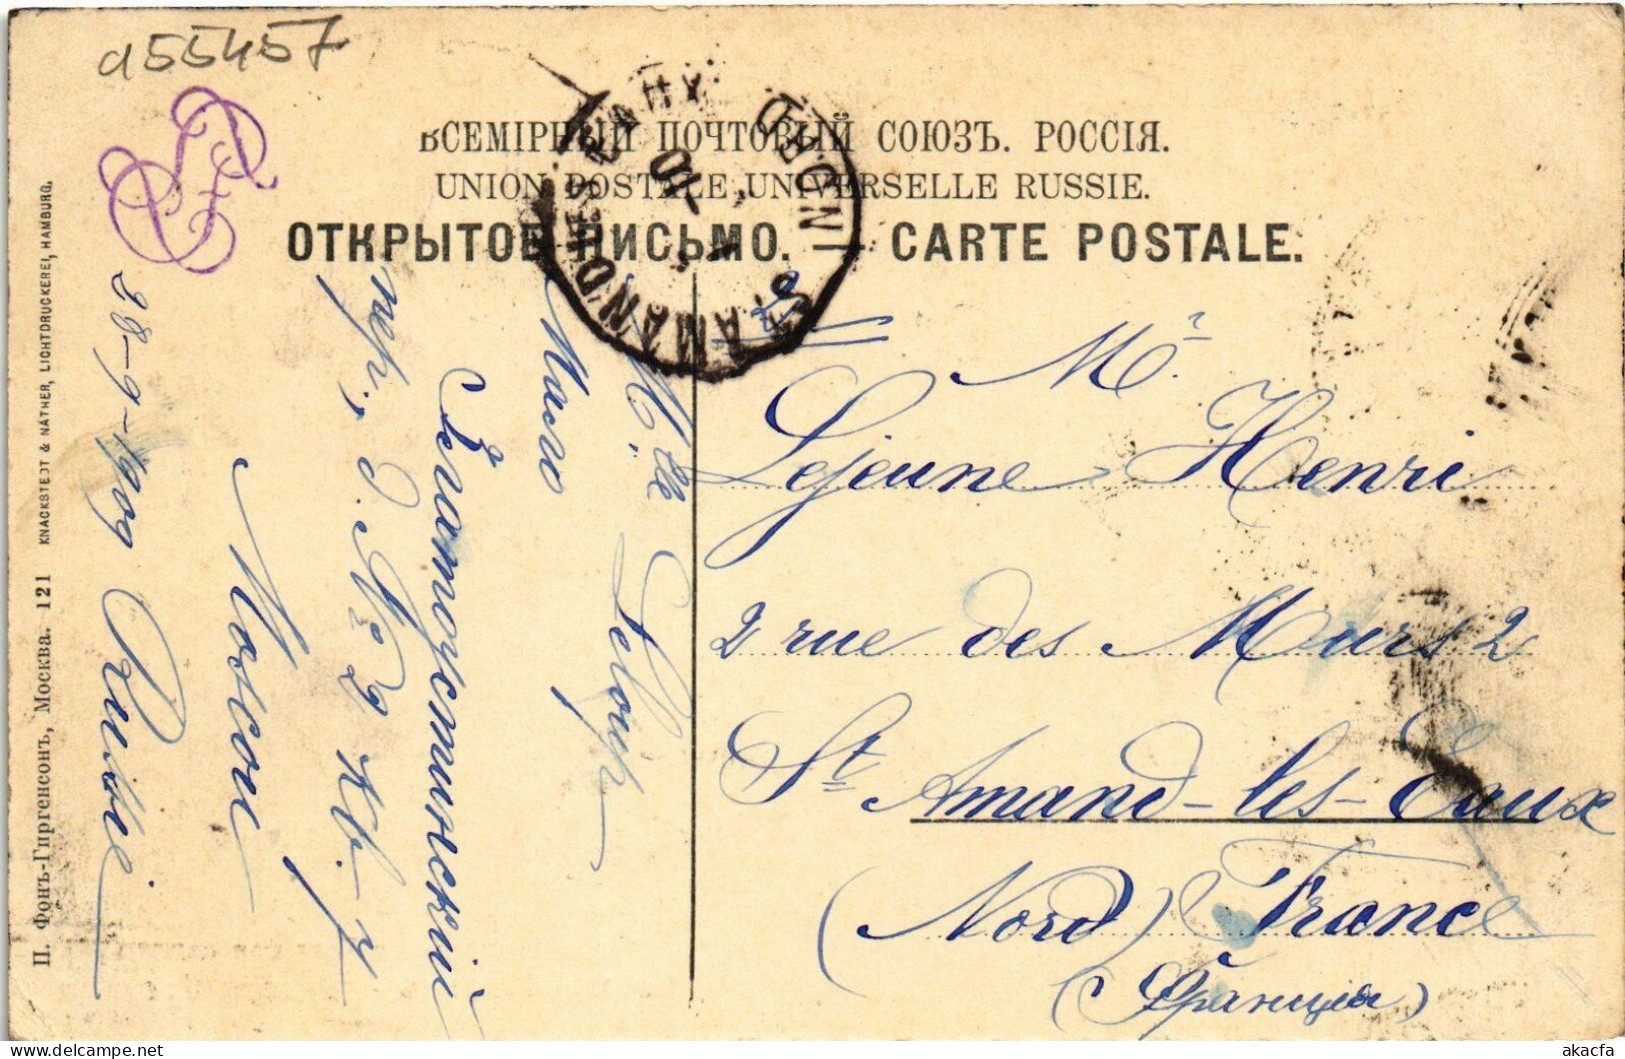 a55457
ВСЕМІРНЫЙ ПОЧТОВЫЙ СОЮЗЪ. РОССІЯ.
UNION POSTALE UNIVERSELLE RUSSIE.
ОТКРЫТОЕ ПИСЬМО. CARTE POSTALE.
ST AMAND LES EAUX
(NORD)
Mr.
Lejeune Henri
2 rue des Murs 2
St Amand-les-Eaux
(Nord) France
(Франція)
M.lle Leloup
Благовѣстинскій
пер., д. № 2 кв. 7
Moscou
28-9-1909 Russie
П. Фонъ-Гиргенсонъ, Москва. 121 KNACKSTEDT & NÄTHER, LICHTDRUCKEREI, HAMBURG.
akacfa